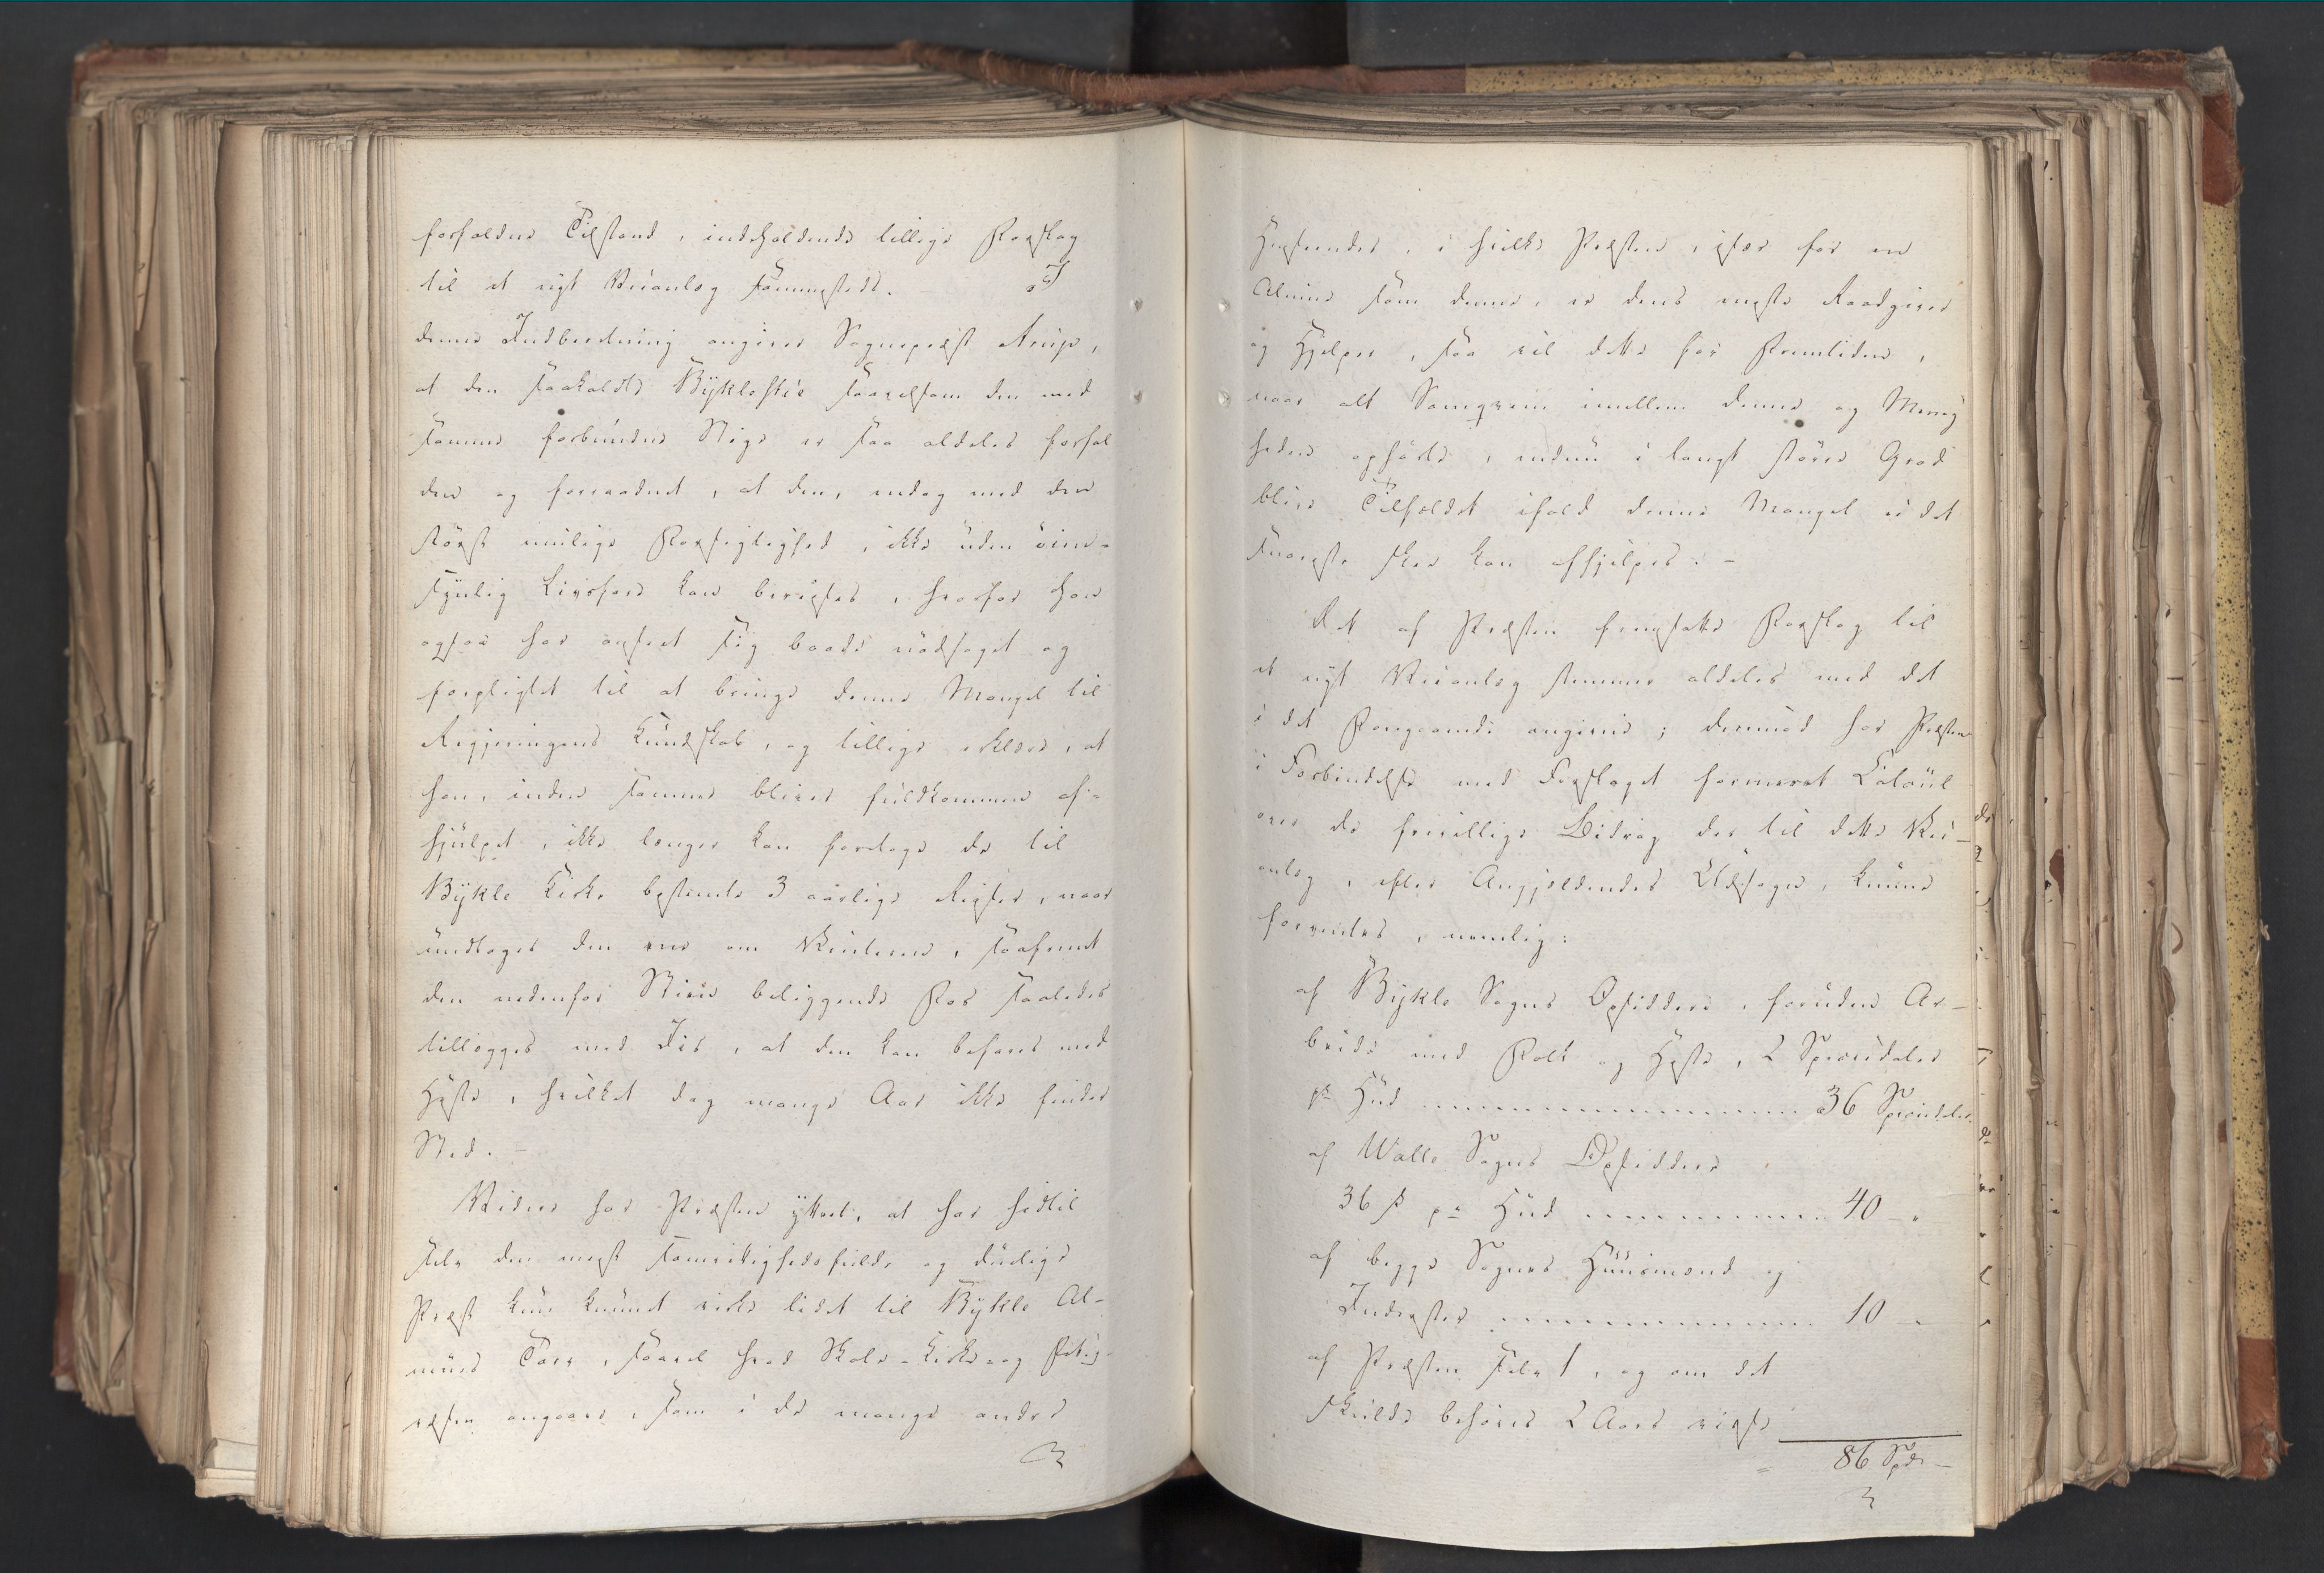 forfaldne Tilstand, indeholdende tillige Forslag
til et nyt Veianlæg sammesteds. I
denne Indberetning angiver Sognepræst Aarup,
at den saakaldte Byklesti saavelsom den med
samme forbundne Stige er saa aldeles forfal
den og forraadnet, at den, endog med den
størst muelige Forsigtighed, ikke uden øien-
synlig Livsfare kan bereises, hvorfor han
ogsaa har anseet sig baade nødsaget og
forpligtet til at bringe denne Mangel til
Regjeringens Kundskab, og tillige erklære, at
han, inden samme bliver fuldkommen af-
hjulpet, ikke længer kan foretage de til
Bykle Kirke bestemte 3 aarlige Reiser, naar
undtages den ene om Vinteren, saafremt
den nedenfor Stien beliggende Fos saaledes
tillægges med Iis, at den kan befares med
Heste, hvilket dog mange Aar ikke finder
Sted. -
Videre har Præsten yttret, at har hidtil
selv den mest samvittighedsfulde og duelige
Præst kun kunnet virke lidet til Bykle Al-
mues Tarv, saavel hvad Skole- Kirke- og Fattig-
væsen angaaer, som i de mange andre
Henseender, i hvilke Præsten, især for en
Almue som denne, er dens meste Raadgiver
og Hjelper, saa vil dette for Fremtiden,
naar alt Samqvem imellem denne og Menig
heden ophørte, endnu i langt større Grad
blive Tilfældet ifald denne Mangel ei det
snareste skee kan afhjelpes. -
Det af Præsten fremsatte Forslag til
et nyt Veianlæg stemmer aldeles med det
i det Foregaaende angivne; derimod har Præsten
i Forbindelse med Forslaget formeret Calcul
over de frivillige Bidrag der til dette Vei-
anlæg, efter Angjeldendes Udsagn, kunne
forventes, nemlig:
af Bykle Sogns Opsiddere, foruden Ar-
beide med Folk og Heste, 2 Speciedaler
pr Hud 36 Speciedaler.
af Walle Sogns Opsiddere
36 ß pr Hud 40 - "
af begge Sognes Huusmænd og
Inderster 10 - "
af Præsten selv 1, og om det
skulde behøves 2 Aars reise
86 Spdr -